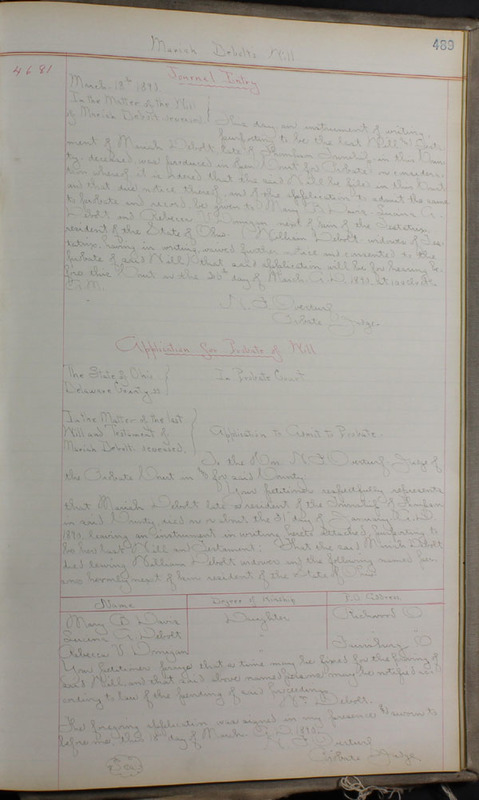 489
Mariah Debolts Will
4681
Journal Entry
March 18th 1893
In the Matter of the Will
of Mariah Debolt deceased
This day an instrument of writing
purporting to be the Last Will & Testa-
ment of Mariah Debolt late of Thompson Township in this Coun-
ty, deceased, was produced in Open Court for Probate; on considera-
tion whereof it is ordered that the said Will be filed in this Court
and that due notice thereof, and of the application to admit the same
to probate and record be given to Mary B.
Debolt and Rebecca V. Donigan next of kin of the Testatrix
resident of the State of Ohio. William Debolt widower of Tes-
tatrix, having in writing waived further notice and consented to the
probate of said Will & that said application will be for hearing be-
fore this Court on the 20th day of March A.D. 1893, at 10 o'clock
A.M.
Probate Judge.
Application for Probate of Will
The State of Ohio
Delaware County, ss
In Probate Court
In the Matter of the last
Will and Testament of
Mariah Debolt deceased.
Application to Admit to Probate.
To the Hon. Judge of
the Probate Court in & for said County
Your Petitioner respectfully represents
that Mariah Debolt late a resident of the Township of Thompson
in said County, died on or about the 31st day of January A.D.
1893, leaving an instrument in writing hereto attached, purporting to
be her last Will and Testament; That the said Mariah Debolt
died leaving William Debolt widower and the following named per-
sons her only next of kin resident of the State of Ohio
Name
Degree of Kinship
P.O. Address
Mary B.
Daughter
Richwood O
Debolt
Rebecca V. Donigan
O
Your petitioner prays that a time may be fixed for the proving of
said Will and that said above named persons may be notified ac-
cording to law of the pendency of said proceedings.
Wm Debolt.
The foregoing application was signed in my presence & sworn to
before me, this 18th day of March A.D. 1893.
Probate Judge
Seal